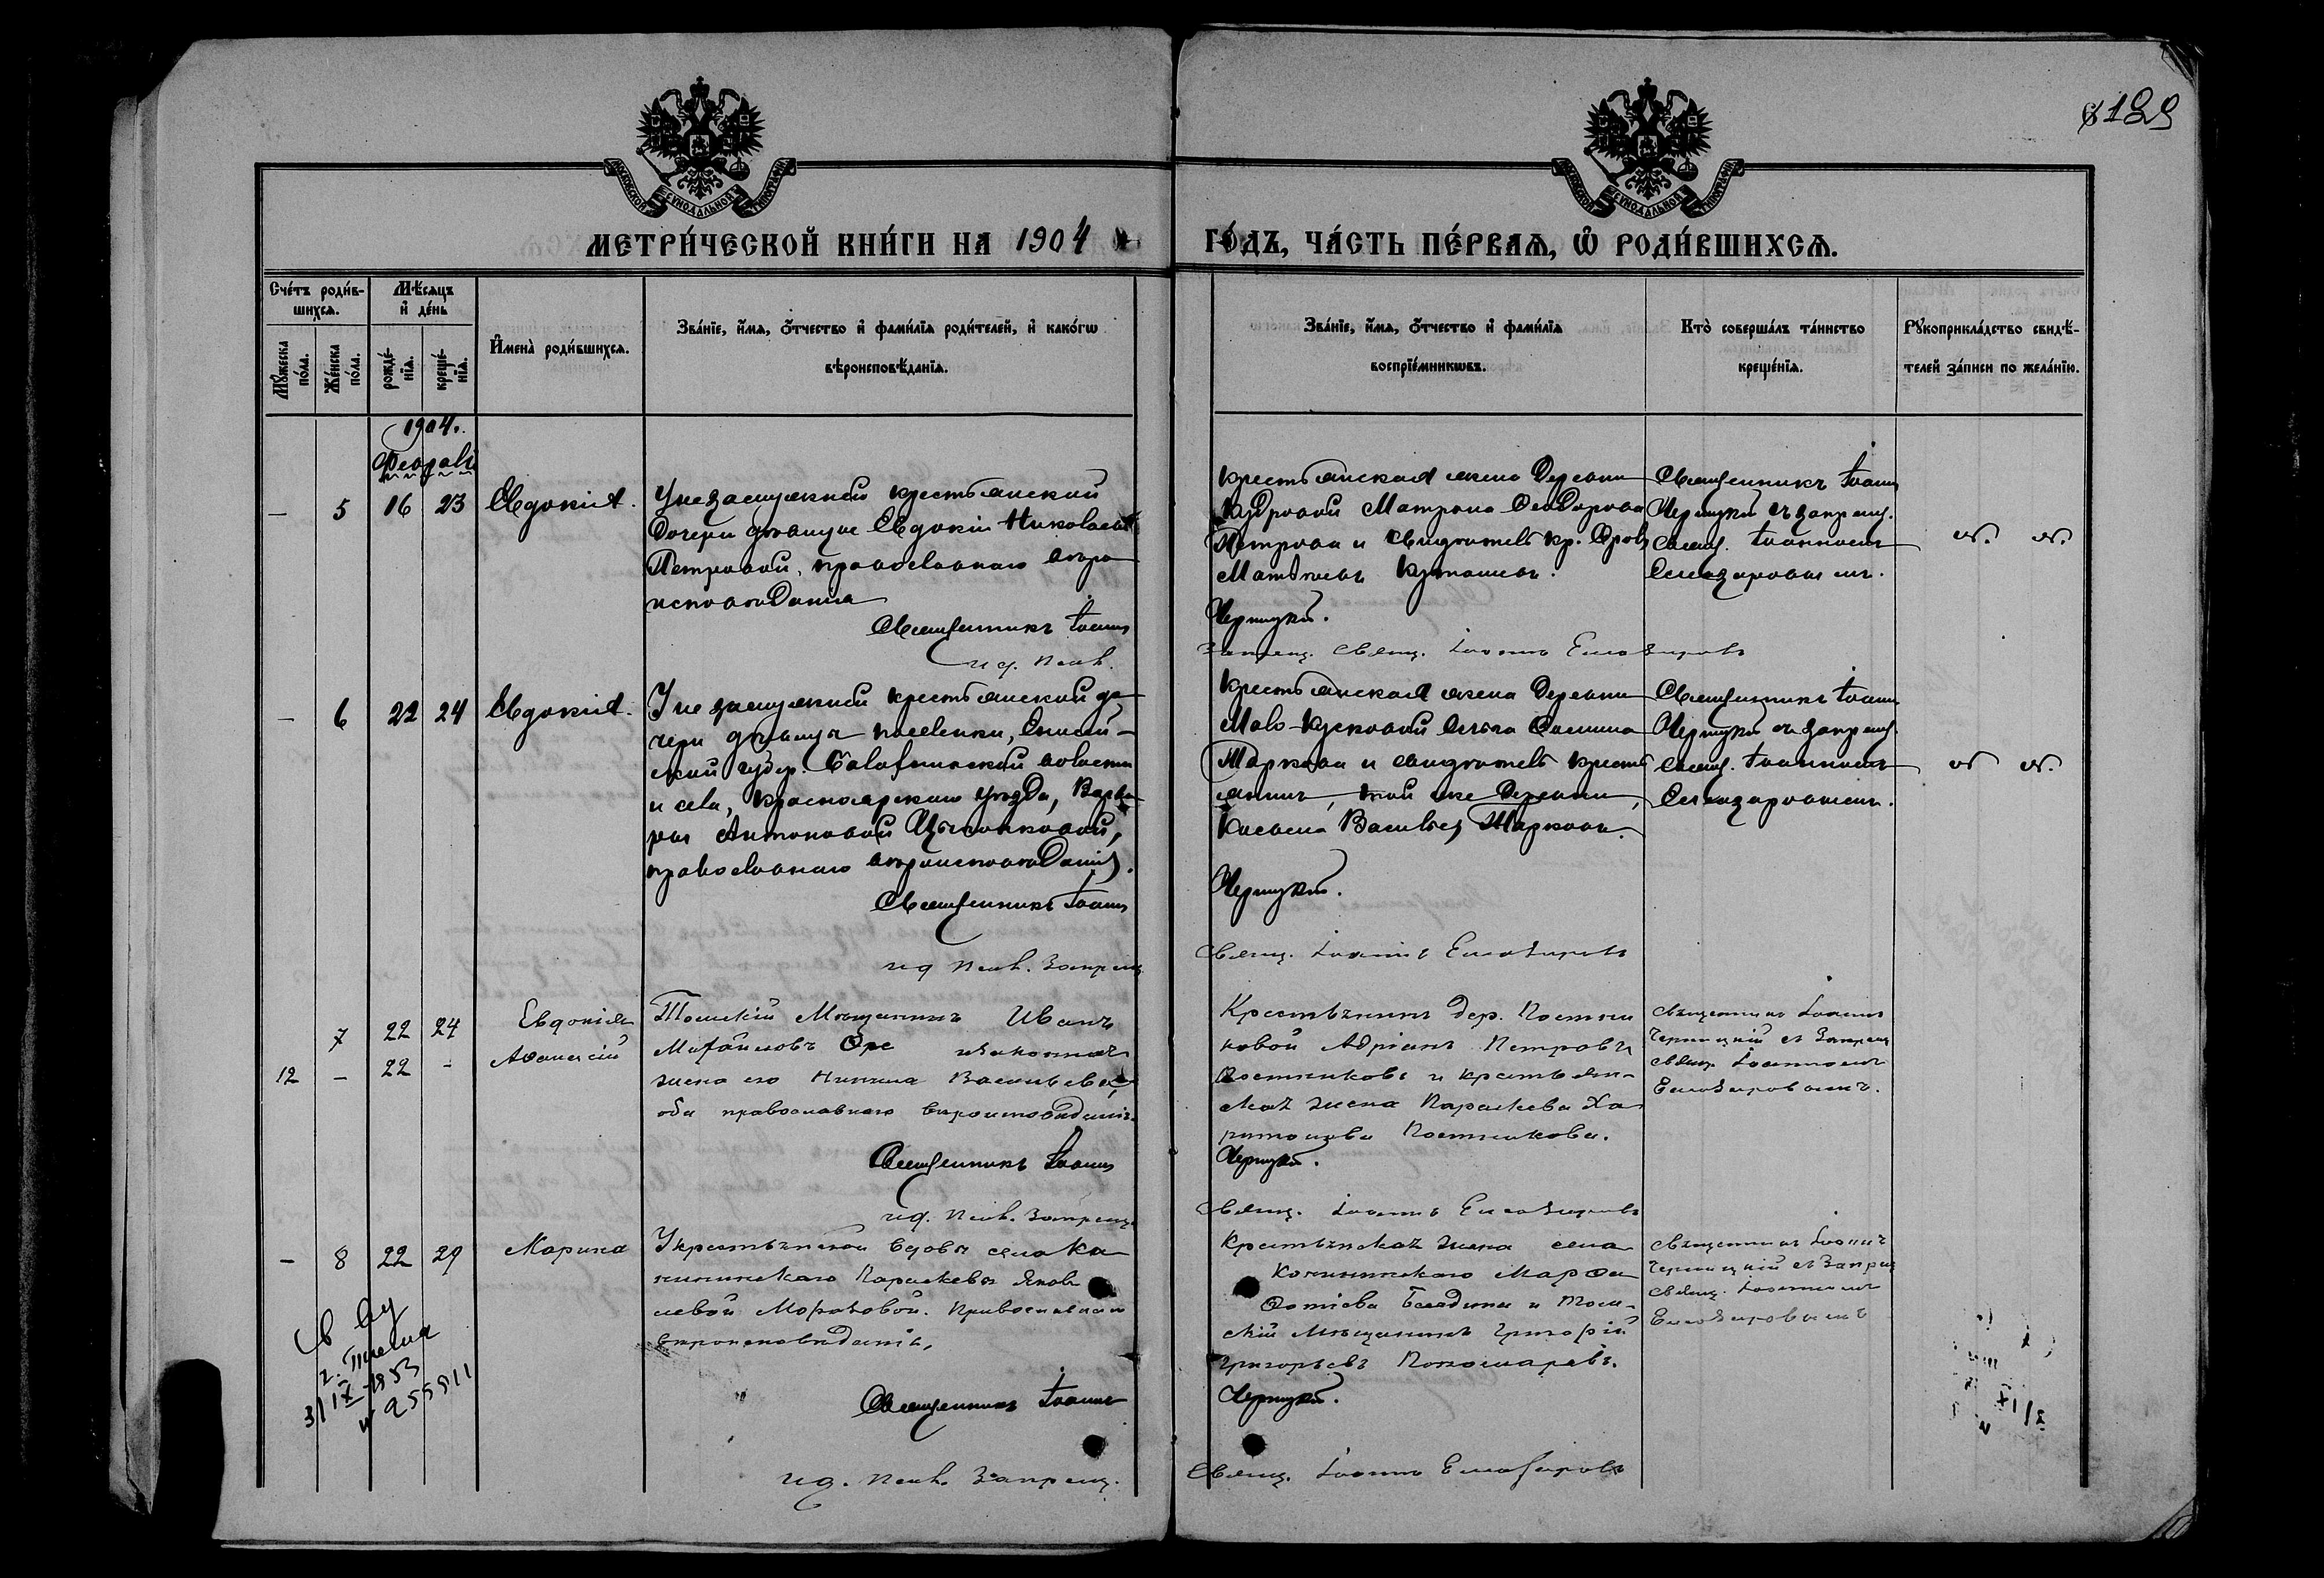 129
МОСКОВСКОЙ СѴНОДАЛЬНОЙ ТИПОГРАФІИ
МОСКОВСКОЙ СѴНОДАЛЬНОЙ ТИПОГРАФІИ
МЕТРИ́ЧЕСКОЙ КНИ́ГИ НА 1904
ГО́ДЪ, ЧА́СТЬ ПЕ́РВАЯ, Ѡ҆ РОДИ́ВШИХСЯ.
Сче́тъ роди́в-
шихся.
Мꙋжеска по́ла.
Же́нска по́ла.
Мѣ́сяцъ
и҆ де́нь
рожде́-
нїя.
креще́-
нїя.
И҆мена̀ роди́вшихся.
Зва́нїе, и҆́мя, ѻ҆́тчество и҆ фами́лїя роди́телей, и҆ како́гѡ
вѣроисповѣ́данїя.
Зва́нїе, и҆́мя, ѻ҆́тчество и҆ фами́лїя
воспрїе́мникѡвъ.
Кто̀ соверша́лъ та́инство
креще́нїя.
Рꙋкоприкла́дство свидѣ́-
телей за́писи по жела́нїю.
1904.
Февраль
— 5 16 23 Евдокія.
У незамужней крестьянской
дочери дѣвицы Евдокіи Николаевой
Петровой, православнаго вѣро
исповѣданія
Священникъ Іоаннъ
и д. псал.
Крестьянская жена деревни
Кудровой Матрона Феодорова
Петрова и свидѣтель кр.
Матвѣевъ
Черницкій.
Запрещ. Свящ. Іоаннъ Елеазаровъ
Священникъ Іоаннъ
Черницкій съ запрещ.
свящ. Іоанномъ
Елеазаровымъ.
— 6 22 24 Евдокія.
У незамужней крестьянской до-
чери дѣвицы поселенки, Енисей-
ской губер. волости
и села, Красноярскаго уѣзда, Варва
ры Антоновой
православнаго вѣроисповѣданія.
Священникъ Іоаннъ
и д псал. Запрещ.
Крестьянская жена деревни
Мало-Кусковой
Маркова и свидѣтель кресть
янинъ, той же деревни,
Васильев Марковъ.
Черницкій.
Свящ. Іоаннъ Елеазаровъ
Священникъ Іоаннъ
Черницкій съ запрещ.
свящ. Іоанномъ
Елеазаровымъ.
7 22 24 Евдокія
12 — 22 - Аѳанасій
Томскій Мѣщанинъ Иванъ
Михайловъ и законная
жена его Васильева,
оба православнаго вѣроисповѣданія.
Священникъ Іоаннъ
и д. псал. Запрещ.
Крестьянинъ дер. Постни
ковой Адріанъ Петровъ
Постниковъ и крестьян-
ская жена Параскева Ха
ритонова Постникова.
Черницкій.
Свящ. Іоаннъ Елеазаровъ
Священникъ Іоаннъ
Черницкій съ Запрещ
свящ. Іоанномъ
Елеазаровымъ.
— 8 22 29 Марина
У крестьянской вдовы села Ка
нинскаго Параскевы Яков
левой Моховой. Православнаго
вѣроисповѣданія.
Священникъ Іоаннъ
и д. псал. Запрещ.
Крестьянская жена села
Марѳа
Фотіева и Том-
скій мѣщанинъ Григорій
Григорьевъ Пономаревъ.
Черницкій.
Свящ. Іоаннъ Елеазаровъ
Священникъ Іоаннъ
Черницкій съ Запрещ
свящ. Іоанномъ
Елеазаровымъ
3/IX-1953
№ 255511